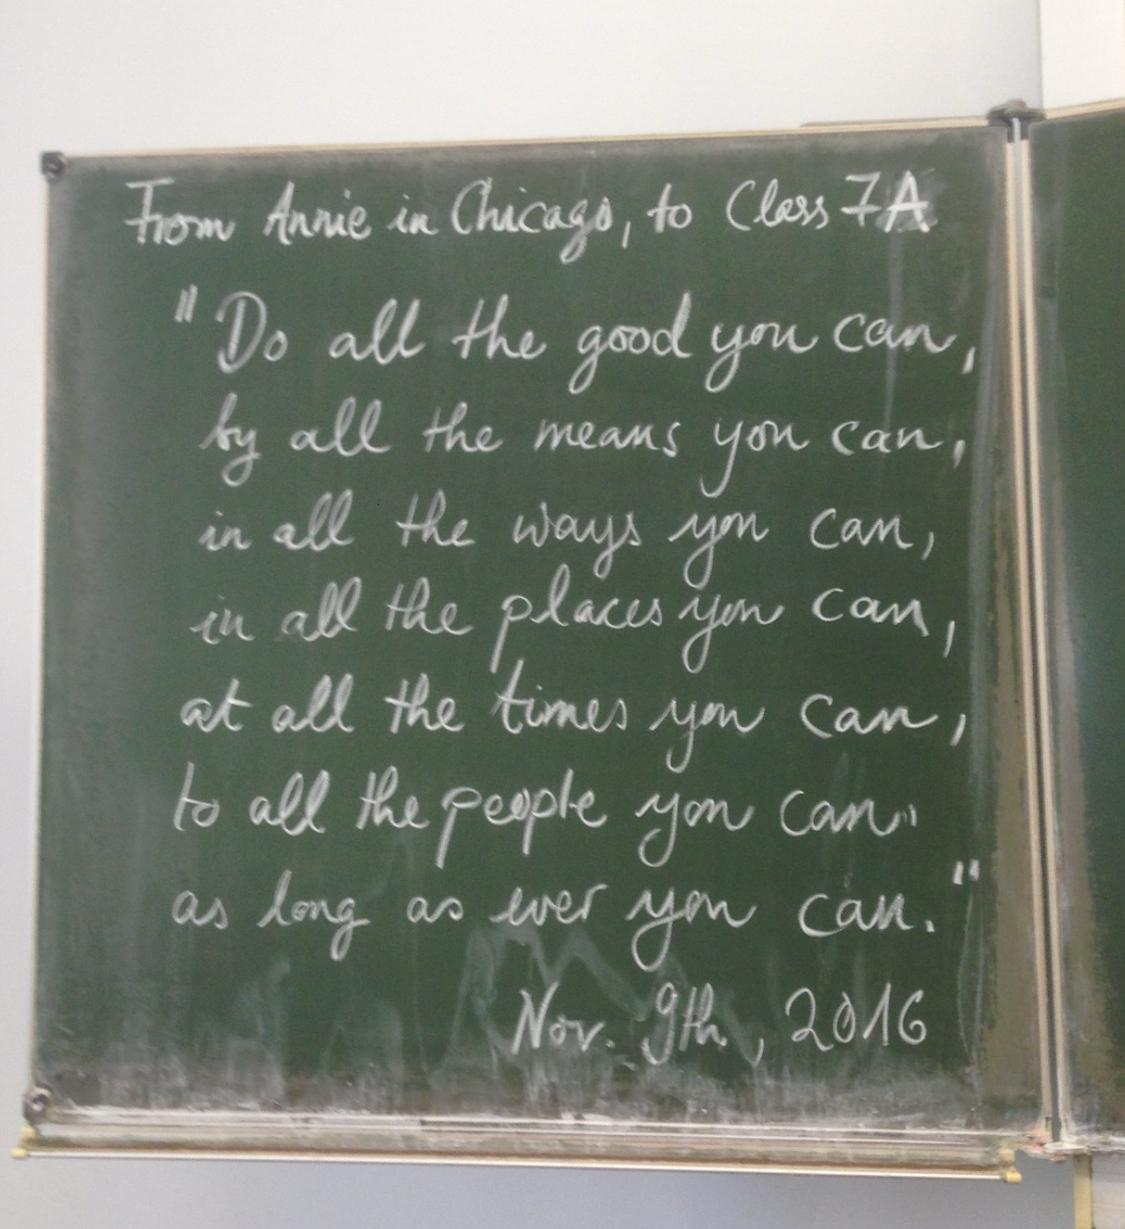 From Annie in Chicago, to Class 7A
"Do all the good you can,
by all the means you can,
in all the ways you can,
in all the places you can,
at all the times you can,
to all the people you can,
as long as ever you can."
Nov. 9th, 2016